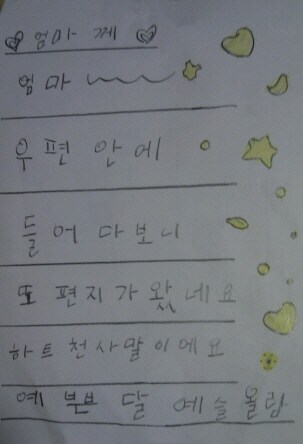 ♡엄마 께♡
엄마 ~~
우편 안에
들어 다보니
또 편지가 왔네요
하트 천사말이에요
예쁜 딸 예슬올림